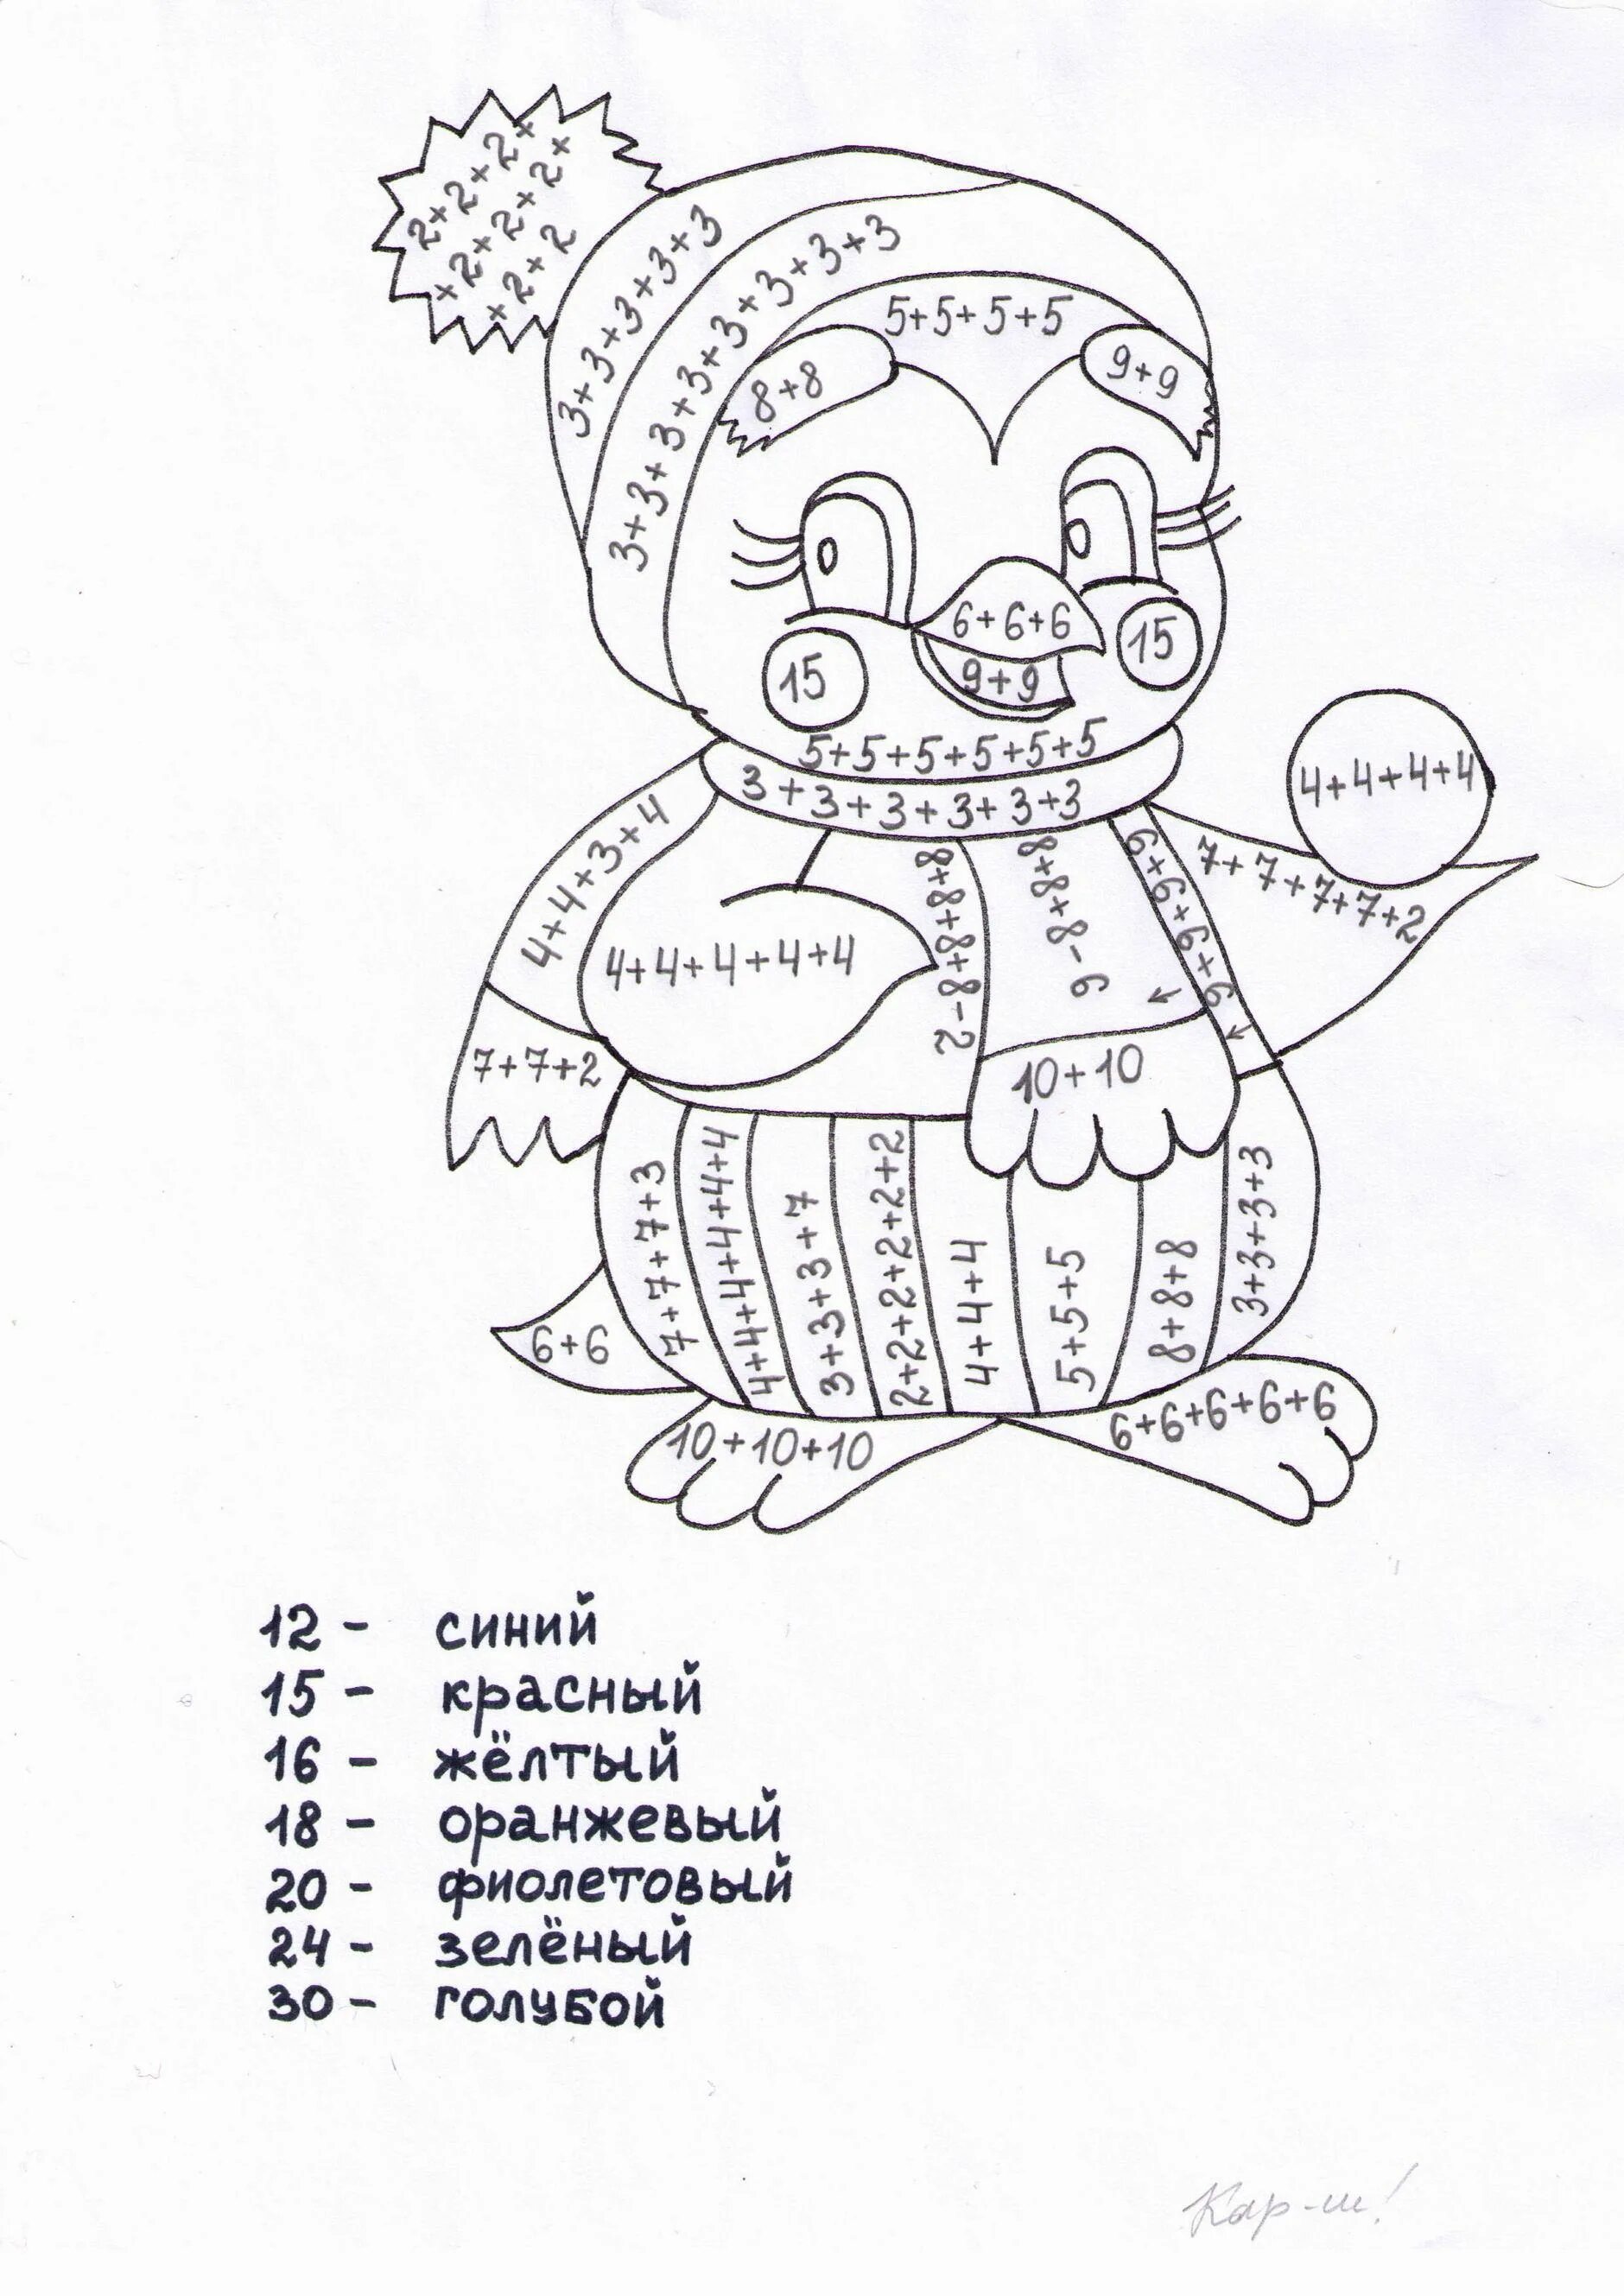 2+2+2+2+
+2+2+2+2+
+2+2
3+3+3+3+3+3
3+3+3+3+3+3+3+3+3+3
5+5+5+5
8+8
9+9
6+6+6
15
15
9+9
5+5+5+5+5+5
3+3+3+3+3+3
4+4+4+4
4+4+3+4
8+8+8+8-2
8+8+8-
6
6+6+6+6
7+7+7+7+2
4+4+4+4+4
7+7+2
10+10
7+7+7+3
4+4+4+4+4+4
3+3+3+7
2+2+2+2+2+2
4+4+4
5+5+5
8+8+8
3+3+3+3
6+6
10+10+10
6+6+6+6+6
12 - синий
15 - красный
16 - жёлтый
18 - оранжевый
20 - фиолетовый
24 - зелёный
30 - голубой
Кар-ш!